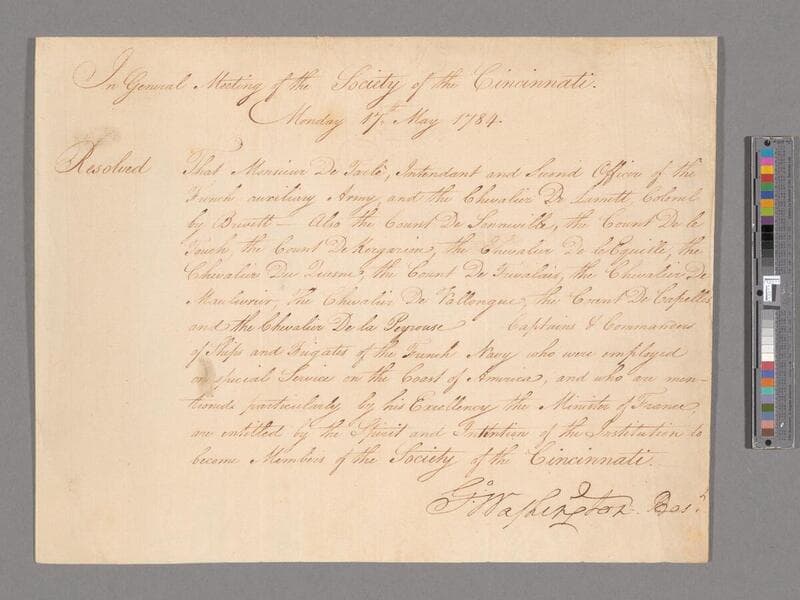 In General Meeting of the Society of the Cincinnati.
Monday 17th May 1784.
Resolved That Monsieur De Tarlé, Intendant and Second Officer of the
French auxiliary Army, and the Chevalier De Lamett, Colonel
by Brevett — Also the Count De Sanneville, the Count De la
Touch, the Count De Kergariou, the Chevalier De l'Eguille, the
Chevalier Du Quesne, the Count De Trevalais, the Chevalier De
Maulevrier, the Chevalier De Vallongue, the Count De Capelles
and the Chevalier De la Peyrouse Captains & Commanders
of Ships and Frigates of the French Navy who were employed
on special Service on the Coast of America, and who are men-
tioned particularly by his Excellency the Minister of France,
are entitled by the Spirit and Intention of the Institution to
become Members of the Society of the Cincinnati.
Go Washington